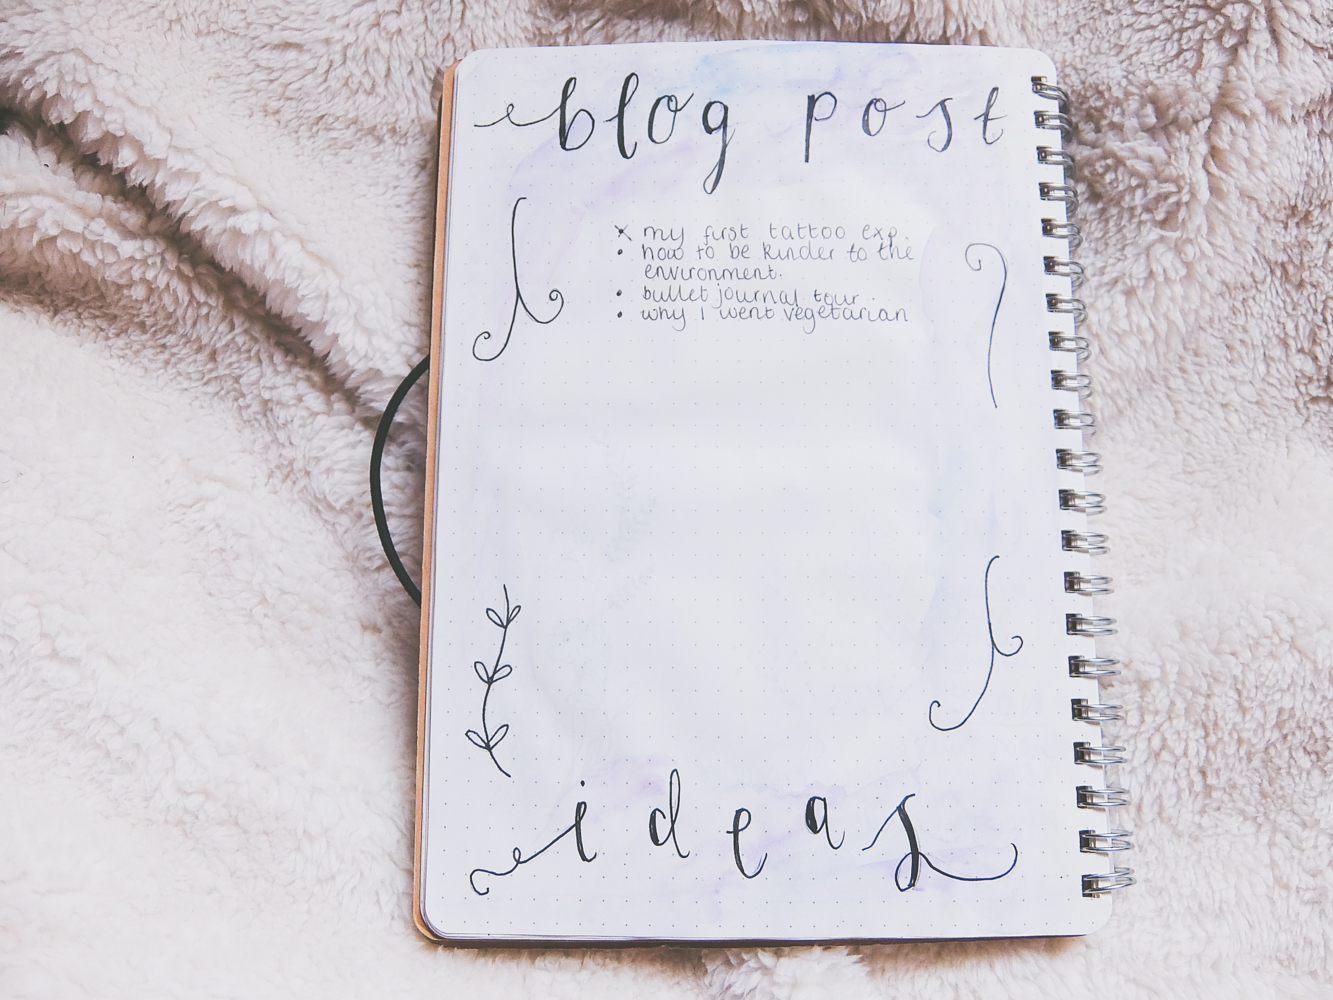 blog post
× my first tattoo exp.
• how to be kinder to the
environment.
• bullet journal tour.
• why I went vegetarian
ideas